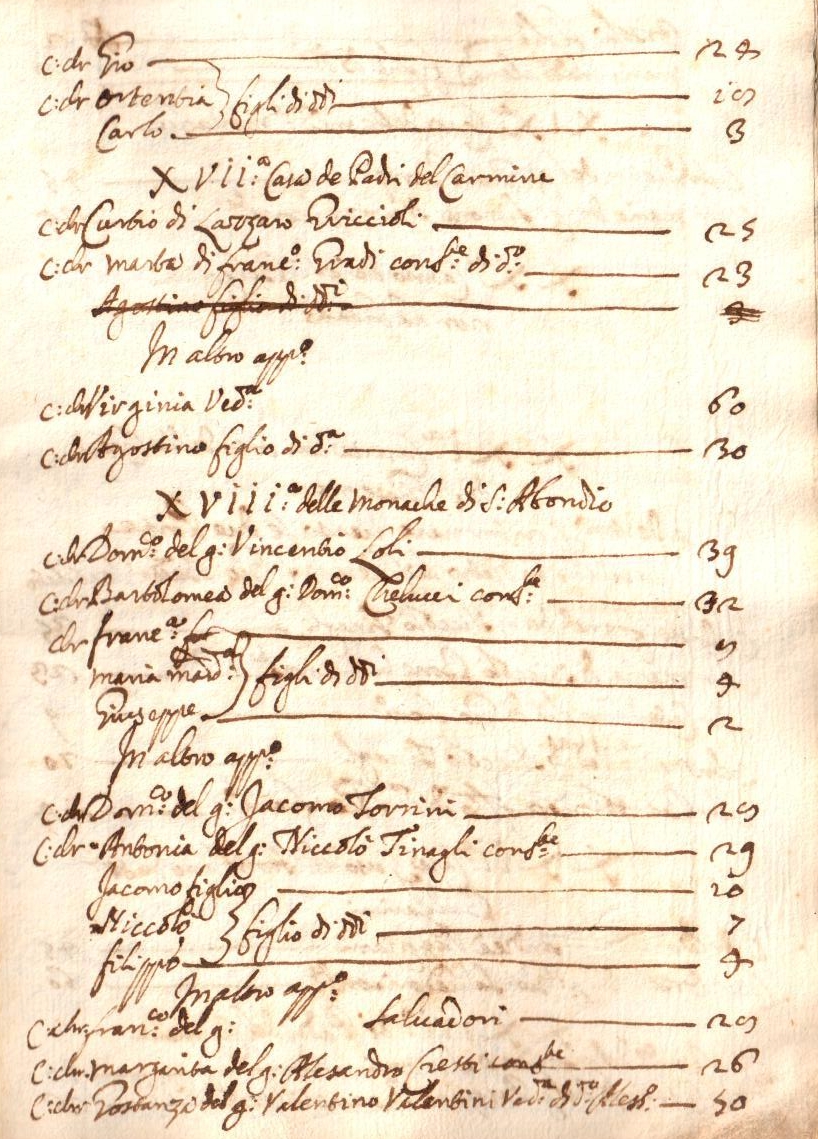 C: chr Gio 24
C: chr Ortentia
Carlo } figli di dti 3
XVII.a Casa de Padri del Carmine
C: chr Curtio di Lazzaro 25
C: chr Marta di Franc.o: Gradi cons.te di d.o 23
Agostino figlio di dti
In altro app.o
C: chr Virginia Ved.a 60
C: chr Agostino figlio di d.a 30
XVIII.a delle Monache di S: Abondio
C: chr Dom.co del g: Vincentio Loli 39
C: chr Bartolomea del g: Dom.co: Chelucci cons.te 32
chr Franc.a
Maria Mad.a } figli di dti 4
Giuseppe 2
In altro app.o
C: chr Dom.co del g: Jacomo Torrini
C: chr Antonia del g: Niccolò Tinagli cons.te 29
Jacomo figlio 10
Niccolò } figlio di dti 7
Filippo 4
In altro app.o
C: chr Fran.co del g: Salvadori
C: chr Margarita del g: Alesandro Cresti cons.te 26
C: chr Gostanza del g: Valentino Valentini Ved.a di d.o Aless.o 50